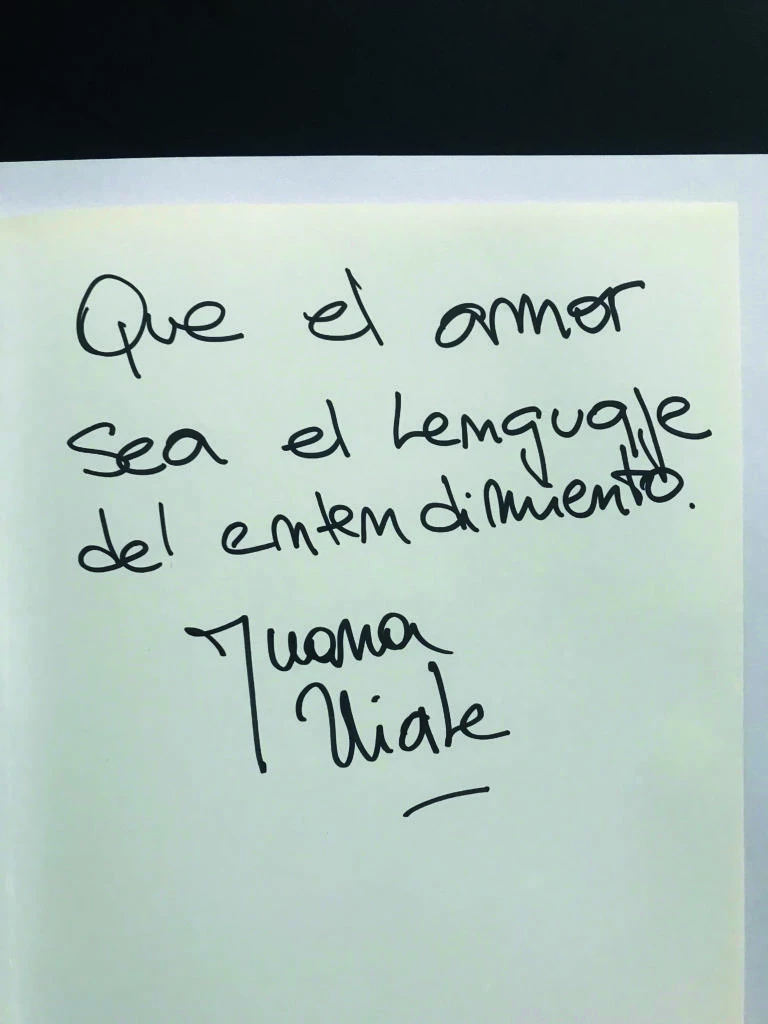 Que el amor
sea el lenguaje
del entendimiento.
Juana
Viale